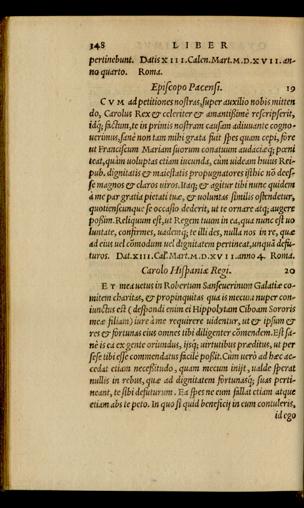 348 LIBER
pertinebunt. Datis XIII. Calen. Mart. M.D.XVII. an-
no quarto. Roma.
Episcopo Pacensi. 19
CVM ad petitiones nostras, super auxilio nobis mitten
do, Carolus Rex & celeriter & amantissimè rescripserit,
idq; factum, te in primis nostram causam adiuuante cogno-
uerimus, sanè non tam mihi grata fuit spes quam cepi, fore
ut Franciscum Mariam suorum conatuum audaciaeq; poeni
teat, quàm uoluptas etiam iucunda, cùm uideam huius Rei-
pub. dignitatis & maiestatis propugnatores isthic nō dees-
se magnos & claros uiros. Itaq; & agitur tibi nunc quidem
à me par gratia pietati tuae, & uoluntas similis ostendetur,
quotienscunque se occasio dederit, ut te ornare atq; augere
possum. Reliquum est, ut Regem tuum in ea, qua nunc est uo
luntate, confirmes, uademq; te illi des, nulla nos in re, quae
ad eius uel cōmodum uel dignitatem pertineat, unquā defu-
turos. Dat. XIII. Cal. Mart. M.D.XVII. anno 4. Roma.
Carolo Hispaniae Regi. 20
ET mea uetus in Robertum Sanseuerinum Galatiae co-
mitem charitas, & propinquitas qua is mecum nuper con-
iunctus est (despondi enim ei Hippolytam Ciboam Sororis
meae filiam) iure à me requirere uidentur, ut & ipsum &
res & fortunas eius omnes tibi diligenter cōmendem. Est sa-
nè is ea ex gente oriundus, ijsq; uirtutibus praeditus, ut per
sese tibi esse commendatus facilè possit. Cùm uerò ad haec ac-
cedat etiam necessitudo, quam mecum inijt, ualde sperat
nullis in rebus, quae ad dignitatem fortunasq; suas perti-
neant, te sibi defuturum. Ea spes ne eum fallat etiam atque
etiam abs te peto. In quo si quid beneficij in eum contuleris,
id ego